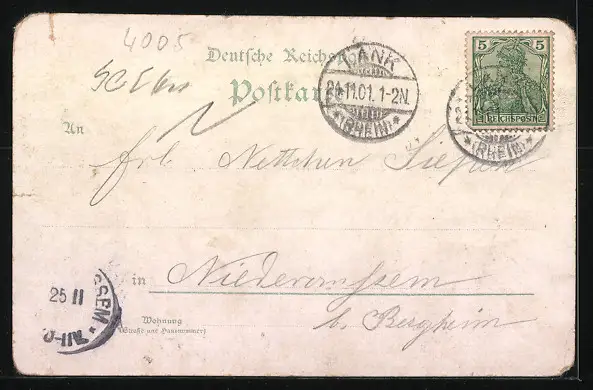 4005
Deutsche Reichspost
Postkarte
LANK
24.11.01. 1-2N.
*(RHEIN)*
5 5
REICHSPOST
*(RHEIN)*
An
Frl. Nettchen Siepen
in Niederaussem
b. Bergheim
Wohnung
(Straße und Hausnummer)
SSEM *
25 11